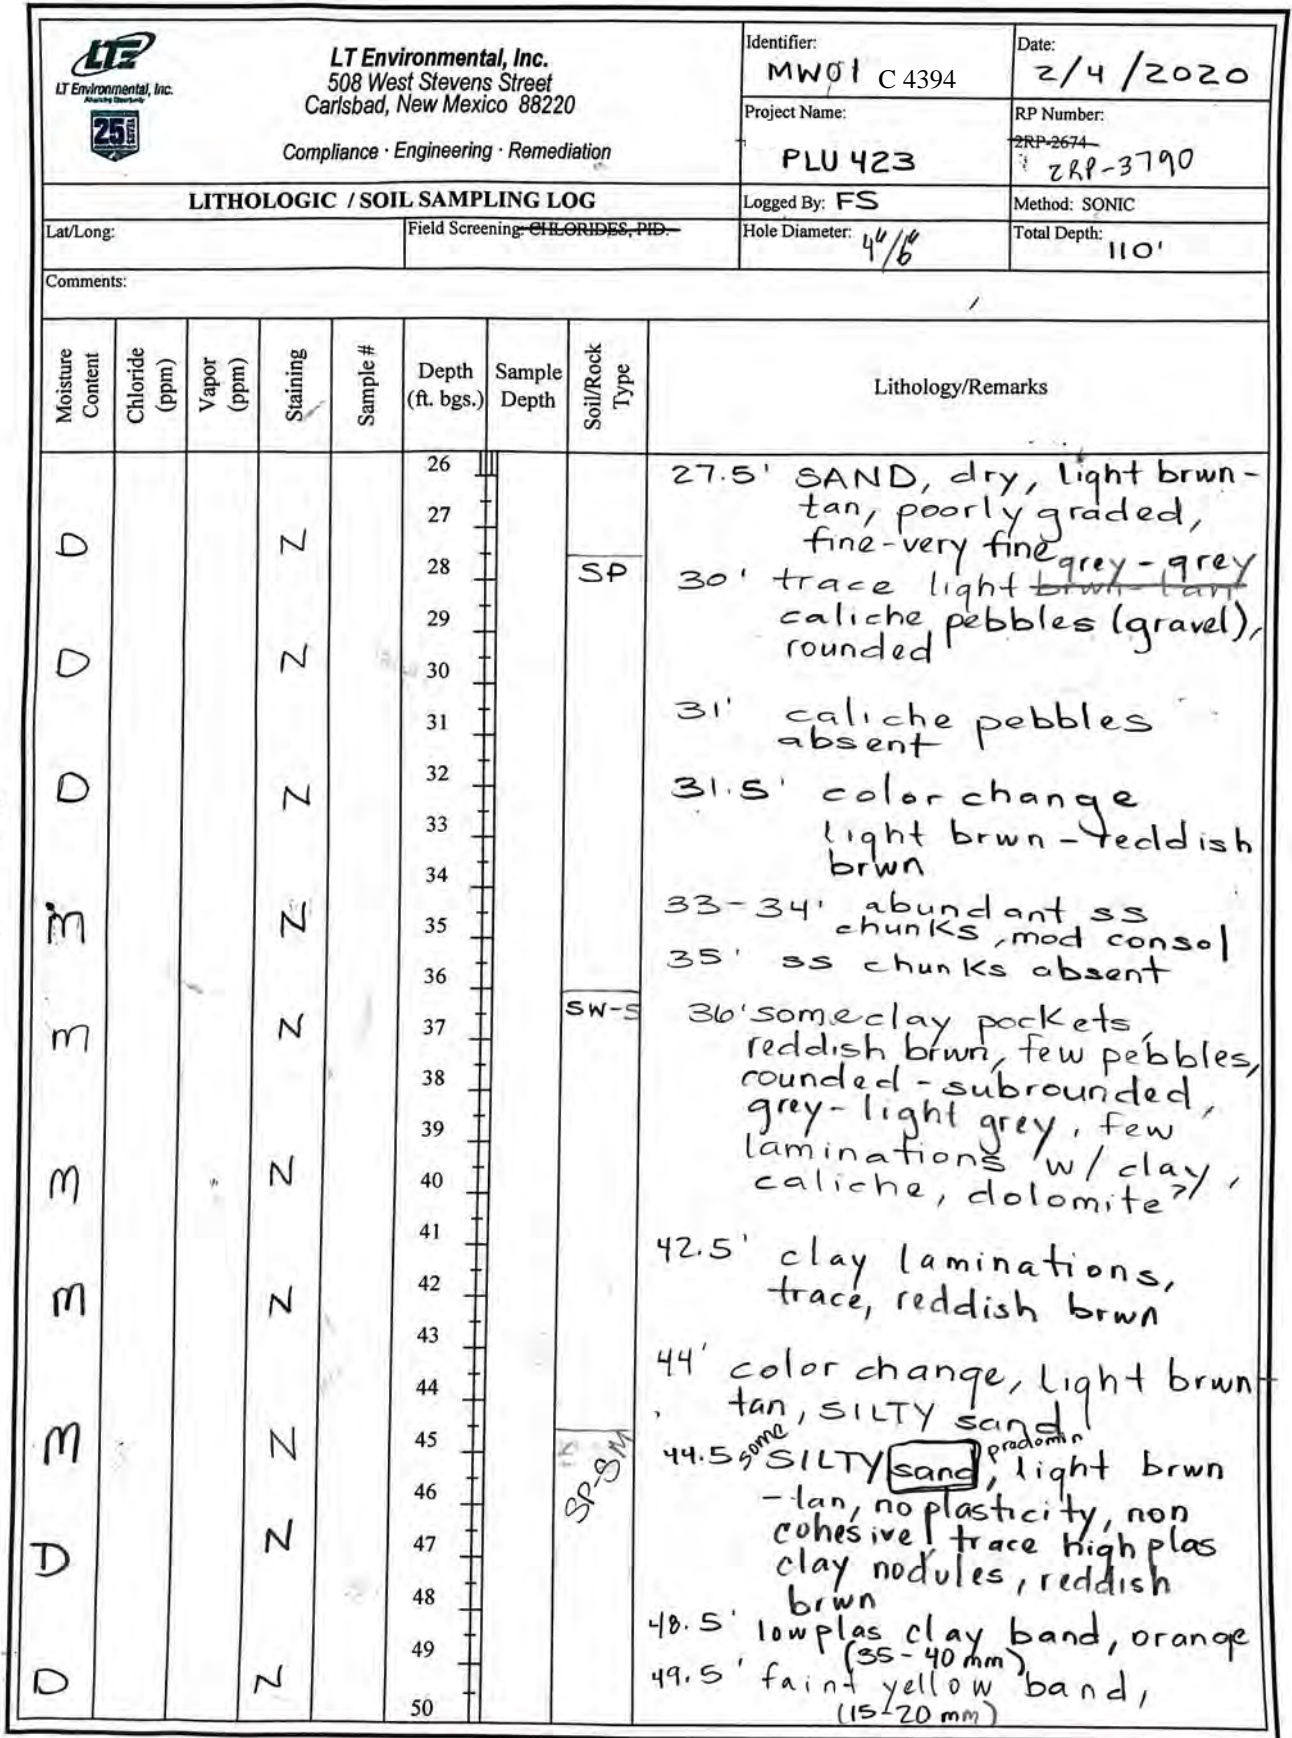 LTE
LT Environmental, Inc.
Advancing Opportunity
25 YEARS
LT Environmental, Inc.
508 West Stevens Street
Carlsbad, New Mexico 88220
Compliance · Engineering · Remediation
Identifier:
MW01 C 4394
Date:
2/4/2020
Project Name:
PLU 423
RP Number:
2RP-2674
2RP-3790
LITHOLOGIC / SOIL SAMPLING LOG
Logged By: FS
Method: SONIC
Lat/Long:
Field Screening: CHLORIDES, PID.
Hole Diameter: 4"/6"
Total Depth: 110'
Comments:
Moisture Content
Chloride (ppm)
Vapor (ppm)
Staining
Sample #
Depth (ft. bgs.)
Sample Depth
Soil/Rock Type
Lithology/Remarks
26
27
D N
28 SP
29
D N
30
31
32
D N
33
34
M N
35
36
SW-S
M N
37
38
39
M N
40
41
42
M N
43
44
M N
45
SP-SM
46
D N
47
48
49
D N
50
27.5' SAND, dry, light brwn-
tan, poorly graded,
fine-very fine
30' trace light brwn-tan grey-grey
caliche pebbles (gravel),
rounded
31' caliche pebbles
absent
31.5' color change
light brwn-reddish
brwn
33-34' abundant ss
chunks, mod consol
35' ss chunks absent
36' some clay pockets,
reddish brwn, few pebbles,
rounded-subrounded,
grey-light grey, few
laminations w/ clay,
caliche, dolomite?
42.5' clay laminations,
trace, reddish brwn
44' color change, light brwn
tan, SILTY sand
44.5' some SILTY sand, predomin light brwn
-tan, no plasticity, non
cohesive, trace high plas
clay nodules, reddish
brwn
48.5' low plas clay band, orange
(35-40 mm)
49.5' faint yellow band,
(15-20 mm)